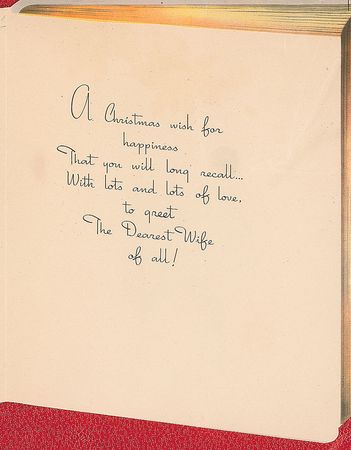 A Christmas wish for
happiness
That you will long recall...
With lots and lots of love,
to greet
The Dearest Wife
of all!